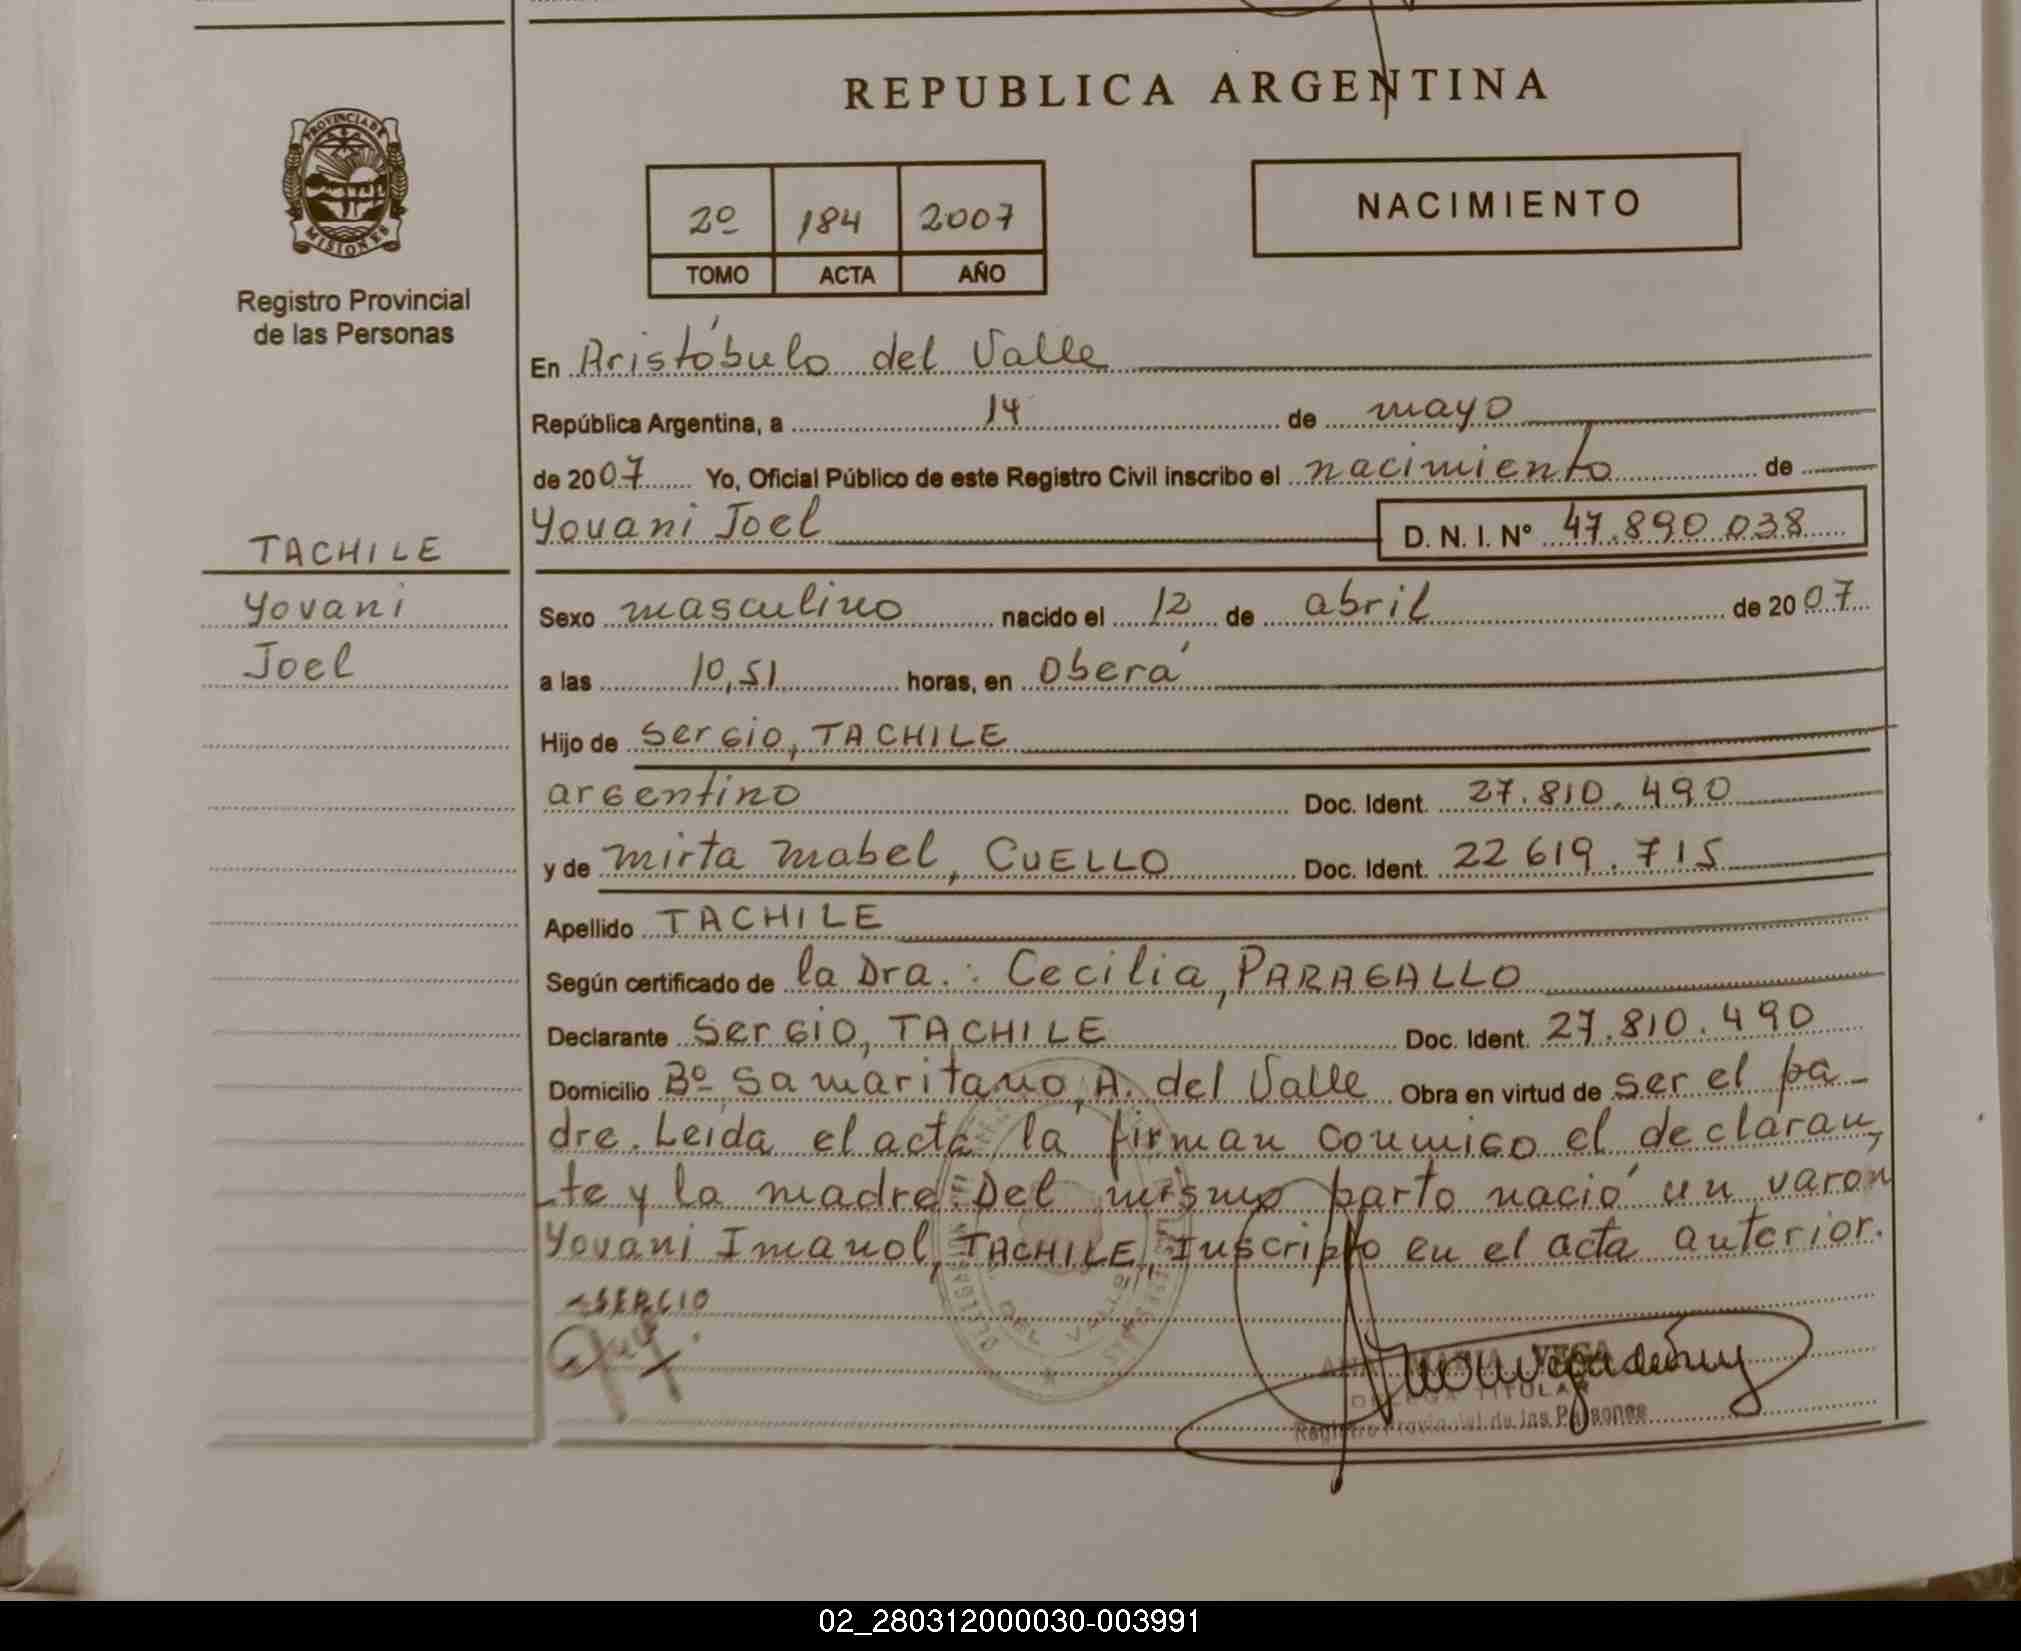 REPUBLICA ARGENTINA
PROVINCIA DE
MISIONES
Registro Provincial
de las Personas
2º 184 2007
TOMO ACTA AÑO
NACIMIENTO
En Aristóbulo del Valle
República Argentina, a 14 de mayo
de 2007 Yo, Oficial Público de este Registro Civil inscribo el nacimiento de
Yovani Joel D. N. I. Nº 47.890.038
TACHILE
Yovani
Joel
Sexo masculino nacido el 12 de abril de 2007
a las 10,51 horas, en Oberá
Hijo de Sergio, TACHILE
argentino Doc. Ident. 27.810.490
y de Mirta Mabel, CUELLO Doc. Ident. 22 619.715
Apellido TACHILE
Según certificado de la Dra.: Cecilia, PARAGALLO
Declarante Sergio, TACHILE Doc. Ident. 27.810.490
Domicilio Bº Samaritano, A. del Valle Obra en virtud de ser el pa-
dre. Leída el acta la firman conmigo el declaran
-te y la madre. Del mismo parto nació un varón
Yovani Imanol, TACHILE, Inscripto en el acta anterior.
SERGIO
DEL VALLE
VEGA
TITULAR
Registro Provincial de las Personas
02_280312000030-003991